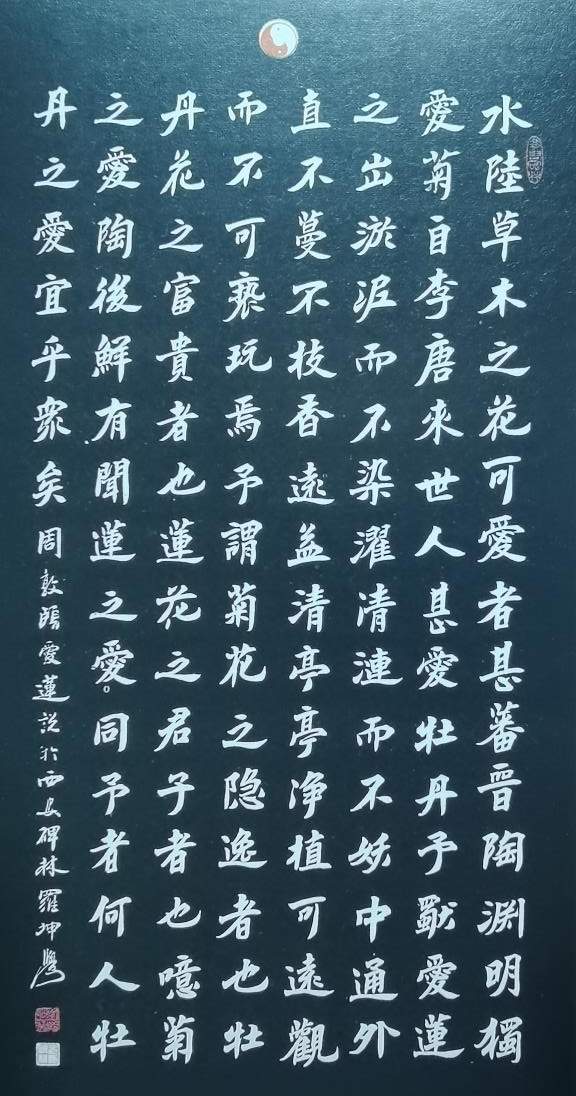 水陸草木之花可愛者甚蕃晉陶渊明獨
愛菊自李唐來世人甚愛牡丹予獸愛蓮
之出淤泥而不染濯清漣而不妖中通外
直不蔓不枝香遠益清亭亭净植可遠觀
而不可亵玩焉予謂菊花之隐逸者也牡
丹花之富貴者也蓮花之君子者也噫菊
之愛陶後鮮有聞蓮之愛。同予者何人牡
丹之愛宜乎眾矣 周敦頤愛蓮説於西安碑林羅坤學